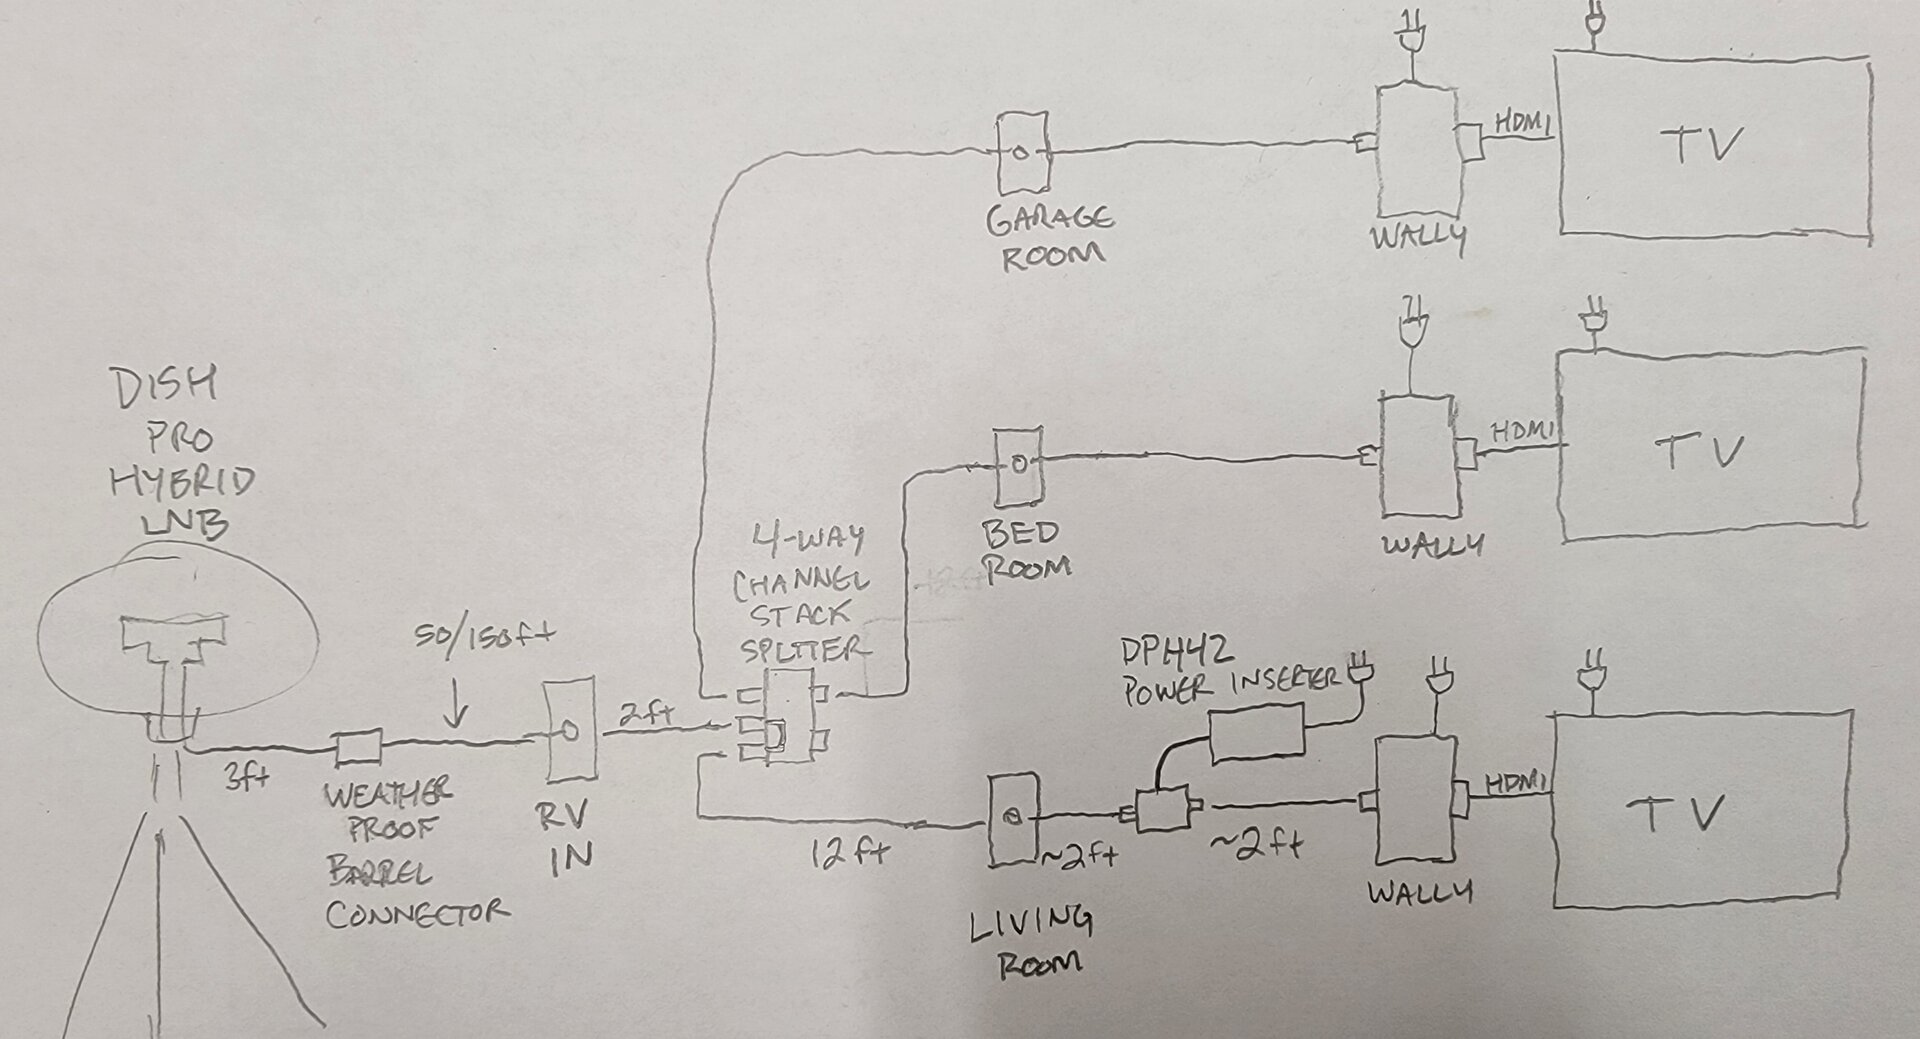 HDMI
TV
GARAGE
ROOM
WALLY
DISH
PRO
HYBRID
LNB
HDMI
TV
BED
ROOM
WALLY
4-WAY
CHANNEL
STACK
SPLTTER
50/150ft
2ft
3ft
WEATHER
PROOF
BARREL
CONNECTOR
RV
IN
12ft
DPH42
POWER INSERTER
~2ft
~2ft
HDMI
TV
WALLY
LIVING
ROOM